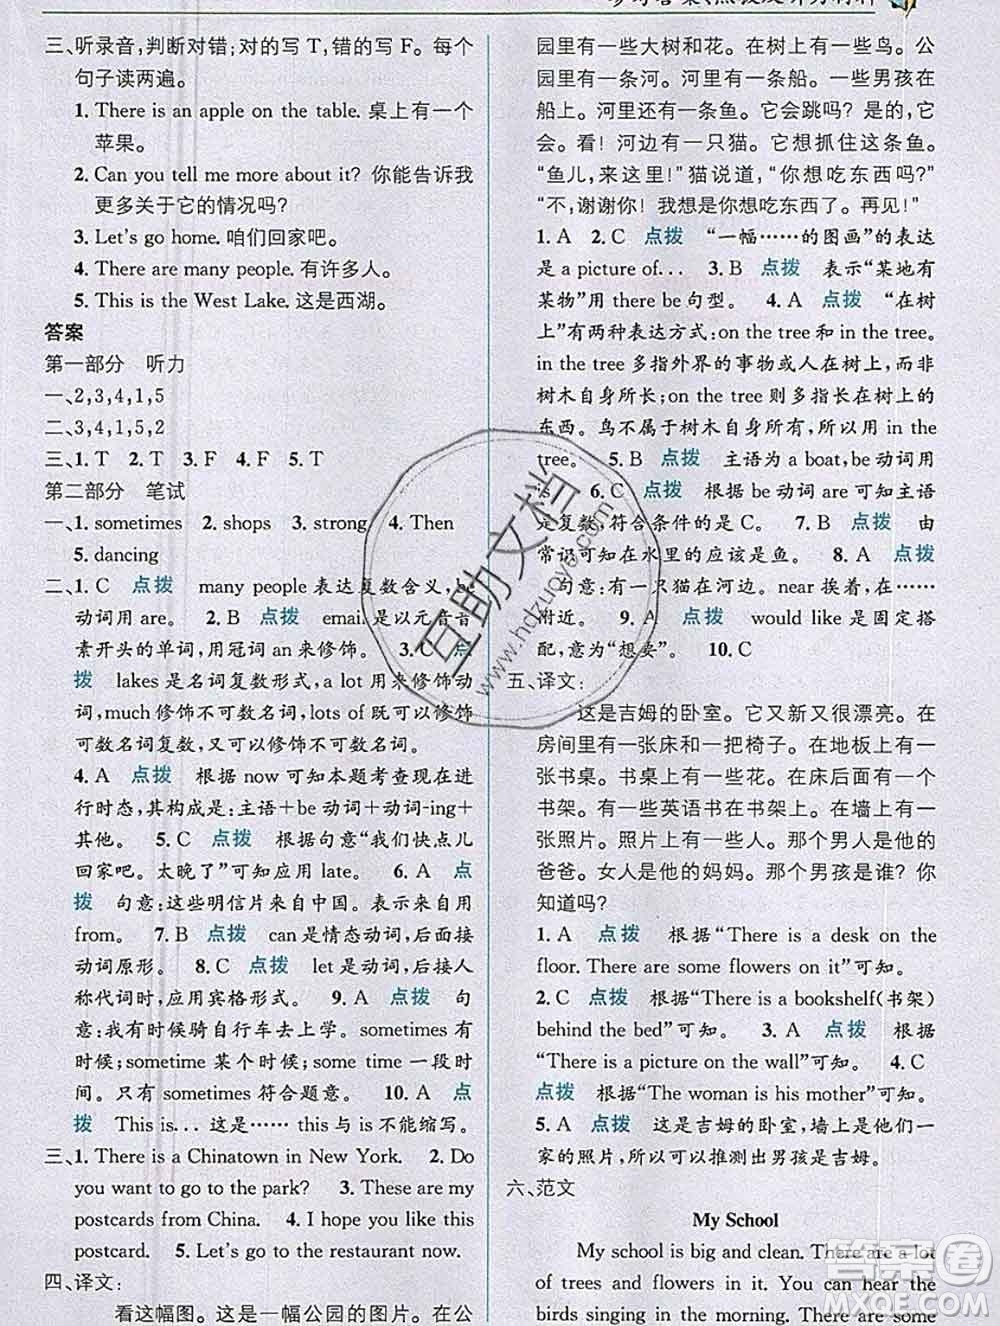 三、听录音,判断对错;对的写 T,错的写 F。每个
句子读两遍。
1. There is an apple on the table. 桌上有一个
苹果。
2. Can you tell me more about it? 你能告诉我
更多关于它的情况吗?
3. Let's go home. 咱们回家吧。
4. There are many people. 有许多人。
5. This is the West Lake. 这是西湖。
答案
第一部分 听力
一、2,3,4,1,5
二、3,4,1,5,2
三、1. T 2. T 3. F 4. F 5. T
第二部分 笔试
一、1. sometimes 2. shops 3. strong 4. Then
5. dancing
二、1. C 点拨 many people 表达复数含义,be
动词用 are。 2. B 点拨 email 是以元音音
素开头的单词,用冠词 an 来修饰。 3. C 点
拨 lakes 是名词复数形式, a lot 用来修饰动
词,much 修饰不可数名词,lots of 既可以修饰
可数名词复数,又可以修饰不可数名词。
4. A 点拨 根据 now 可知本题考查现在进
行时态,其构成是:主语+be 动词+动词-ing+
其他。 5. C 点拨 根据句意“我们快点儿
回家吧。太晚了”可知应用 late。 6. A 点
拨 句意:这些明信片来自中国。表示来自用
from。 7. B 点拨 can 是情态动词,后接
动词原形。 8. C 点拨 let 是动词,后接人
称代词时,应用宾格形式。 9. A 点拨 句
意:我有时候骑自行车去上学。sometimes 有
时候;sometime 某个时候;some time 一段时
间。只有 sometimes 符合题意。 10. A 点
拨 This is... 这是…… this 与 is 不能缩写。
三、1. There is a Chinatown in New York. 2. Do
you want to go to the park? 3. These are my
postcards from China. 4. I hope you like this
postcard. 5. Let's go to the restaurant now.
四、译文:
看这幅图。这是一幅公园的图片。在公
园里有一些大树和花。在树上有一些鸟。公
园里有一条河。河里有一条船。一些男孩在
船上。河里还有一条鱼。它会跳吗? 是的,它
会。看! 河边有一只猫。它想抓住这条鱼。
“鱼儿,来这里!”猫说道,“你想吃东西吗?”
“不,谢谢你! 我是你想吃的东西了。再见!”
1. A 2. C 点拨 “一幅……的图画”的表达
是 a picture of... 3. B 点拨 表示“某地有
某物”用 there be 句型。 4. A 点拨 “在树
上”有两种表达方式:on the tree 和 in the tree.
in the tree 多指外界的事物或人在树上,而非
树木自身所长;on the tree 则多指树木自身所
生所长。鸟不属于树木自身所有,所以用 in the
tree。 5. B 点拨 主语为 a boat,be 动词用
is。 6. C 点拨 根据 be 动词 are 可知主语
是复数,符合条件的是 C。 7. B 点拨 由
常识可知在水里的应该是鱼。 8. A 点拨
句意:有一只猫在河边。near 挨着,在……
附近。 9. A 点拨 would like 是固定搭
配,意为“想要”。 10. C
五、译文:
这是吉姆的卧室。它又新又很漂亮。在
房间里有一张床和一把椅子。在地板上有一
张书桌。书桌上有一些花。在床后面有一个
书架。有一些英语书在书架上。在墙上有一
张照片。照片上有一些人。那个男人是他的
爸爸。女人是他的妈妈。那个男孩是谁? 你
知道吗?
1. A 点拨 根据“There is a desk on the
floor. There are some flowers on it”可知。
2. C 点拨 根据“There is a bookshelf(书架)
behind the bed”可知。 3. A 点拨 根据
“There is a picture on the wall”可知。 4. C
点拨 根据“The woman is his mother”可知。
5. A 点拨 这是吉姆的卧室,墙上是他们一
家的照片,所以可以推测出男孩是吉姆。
六、范文
My School
My school is big and clean. There are a lot
of trees and flowers in it. You can hear the
birds singing in the morning. There are some
互助文档
www.hdzuoye.com
答案圈
MXQE.COM